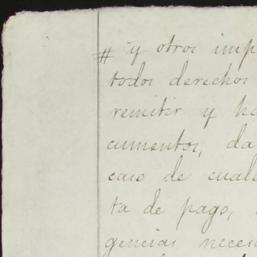 # y otros imp
todos derechos
remitir y ha
cumentos, da
caso de cual
ta de pago,
gencias neces